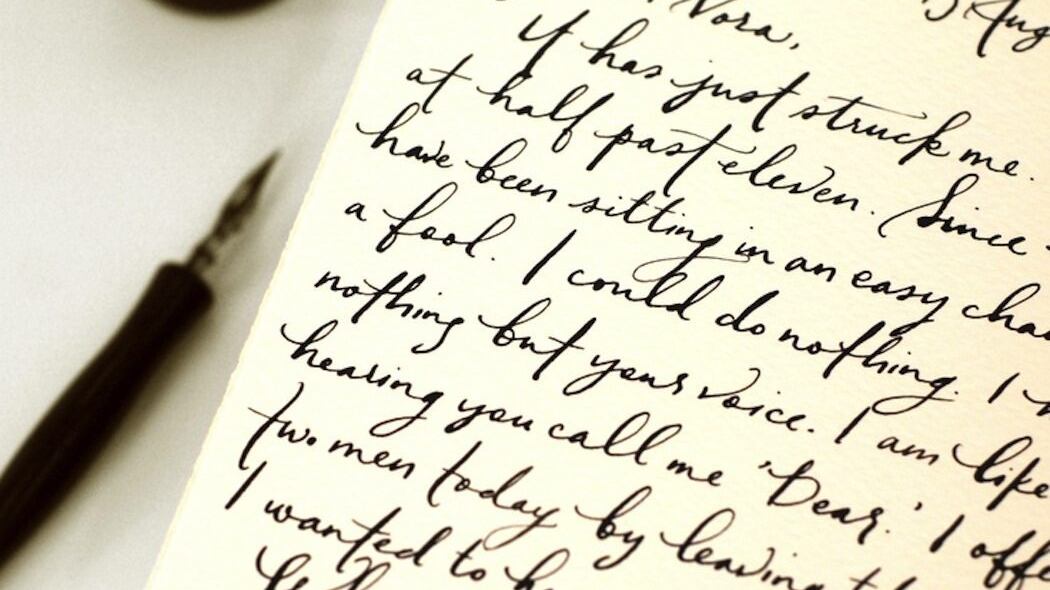 Nora, 15 Aug
It has just struck me.
at half past eleven. Since
have been sitting in an easy chai
a fool. I could do nothing. I
nothing but your voice. I am like
hearing you call me 'Dear.' I offe
two men today by leaving
I wanted to